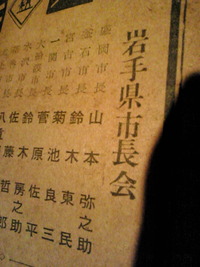 岩手県市長会
盛岡市長 山本弥之助
釜石市長 鈴木東民
宮古市長 菊池良三
一関市長 菅原佐平
大船渡市長 鈴木房之助
水沢市長 佐藤哲郎